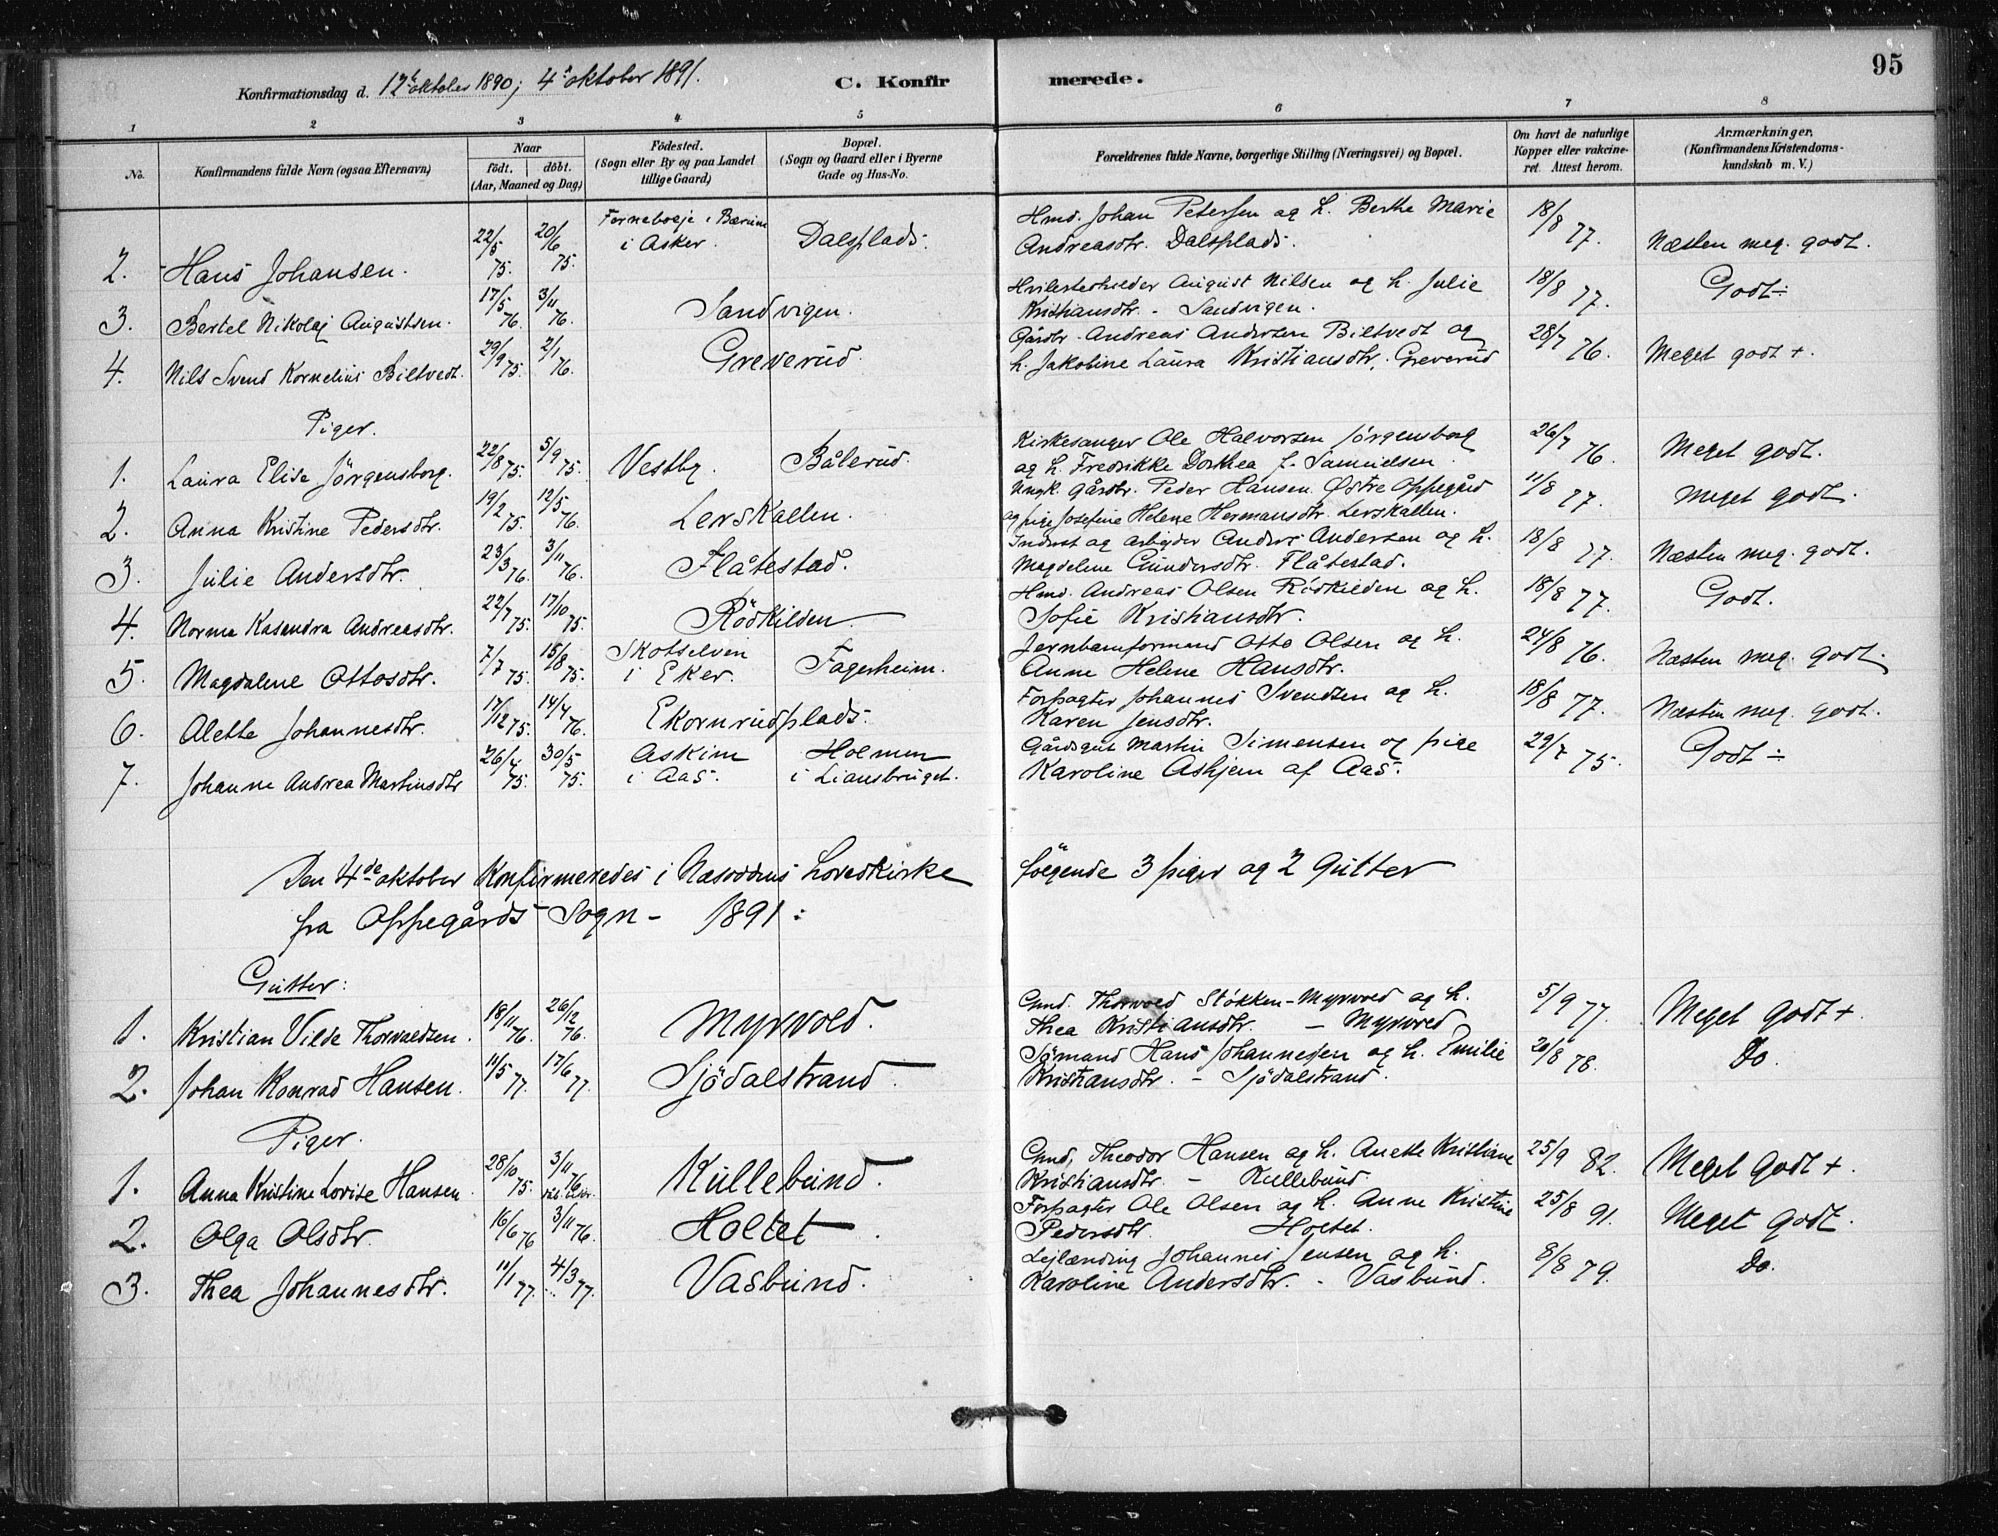 95
Konfirmationsdag d. 12te oktober 1890; 4de oktober 1891. C. Konfirmerede.
1 2 3 4 5 6 7 8
No. Konfirmandens fulde Navn (ogsaa Efternavn) Naar födt. döbt. (Aar, Maaned og Dag) Födested. (Sogn eller By og paa Landet tillige Gaard) Bopæl. (Sogn og Gaard eller i Byerne Gade og Hus-No.) Forældrenes fulde Navne, borgerlige Stilling (Næringsvei) og Bopæl. Om havt de naturlige Kopper eller vakcineret. Attest herom. Anmærkninger. (Konfirmandens Kristendomskundskab m. V.)
2. Hans Johansen. 22/5 75. 20/6 75. Forneboeje i Bærum i Asker. Dalsplads. Hmd. Johan Petersen og h. Berthe Marie Andreasdtr. Dalsplads. 18/8 77. Næsten meg. godt.
3. Bertel Nikolaj Augustsen. 17/5 76. 3/11 76. Sandvigen. August Nilsen og h. Julie Kristiansdtr. - Sandvigen. 18/8 77. Godt ÷
4. Nils Svend Kornelius Biltvedt. 29/9 75. 2/1 76. Greverud. Gårdbr. Andreas Andersen Biltvedt og h. Jakobine Laura Kristiansdtr. Greverud 28/7 76. Meget godt +.
Piger.
1. Laura Elise Jörgensborg. 22/8 75. 5/9 75. Vestby. Bålerud. Kirkesanger Ole Halvorsen Jörgensborg og h. Fredrikke Dorthea f. Samuelsen 26/7 76. Meget godt.
2. Anna Kristine Pedersdtr. 19/2 75. 12/5 76. Lerskallen. Ungk. Gårdbr. Peder Hansen Østre Oppegård og pige Josefine Helene Hermansdtr. Lerskallen. 11/8 77. Meget godt.
3. Julie Andersdtr. 23/3 76. 3/11 76. Flåtestad. Inderst og arbejder Anders Andersen og h. Magdelene Gundersdtr. Flåtestad. 18/8 77. Næsten meg. godt.
4. Norma Kasandra Andreasdtr. 22/7 75. 17/10 75. Rödkilden Hmd. Andreas Olsen Rödkilden og h. Sofie Kristiansdtr. 18/8 77. Godt.
5. Magdalene Ottosdtr. 7/7 75. 15/8 75. Skotselven i Eker. Fagerheim. Jernbaneformand Otto Olsen og h. Anne Helene Hansdtr. 24/8 76. Næsten meg. godt.
6. Alette Johannesdtr. 17/12 75. 14/4 76. Ekornrudplads. Forpagter Johannes Svendsen og h. Karen Jensdtr. 18/8 77. Næsten meg. godt.
7. Johanne Andrea Martinsdtr 26/4 75. 30/5 75. Askim i Aas. Holmen i Liansbruget. Gårdsgut Martin Simensen og pige Karoline Askjem af Aas. 29/7 75. Godt ÷
Den 4de oktober Konfirmeredes i Næsoddens hovedkirke følgende 3 piger og 2 Gutter
fra Oppegårds Sogn - 1891:
Gutter:
1. Kristian Vilde Thorvaldsen. 18/11 76. 26/12 76. Myrvold. Gmd. Thorvald Støkken-Myrvold og h. Thea Kristiansdtr. - Myrvold 5/9 77. Meget godt +.
2. Johan Konrad Hansen. 11/5 77. 17/6 77. Sjödalstrand. Sømand Hans Johannesen og h. Emilie Kristiansdtr. - Sjödalstrand. 26/8 78. Do.
Piger.
1. Anna Kristine Lovise Hansen. 28/10 75. 3/11 76 Kullebund. Gmd. Theodor Hansen og h. Anette Kristiane Kristiansdtr. - Kullebund 25/9 82. Meget godt +.
2. Olga Olsdtr. 16/6 76 3/11 76. Holtet. Forpagter Ole Olsen og h. Anne Kristine Pedersdtr. Holtet. 25/8 91. Meget godt.
3. Thea Johannesdtr. 11/1 77. 4/3 77. Vasbund. Lejlænding Johannes Jensen og h. Karoline Andersdtr. - Vasbund. 8/8 79. Do.